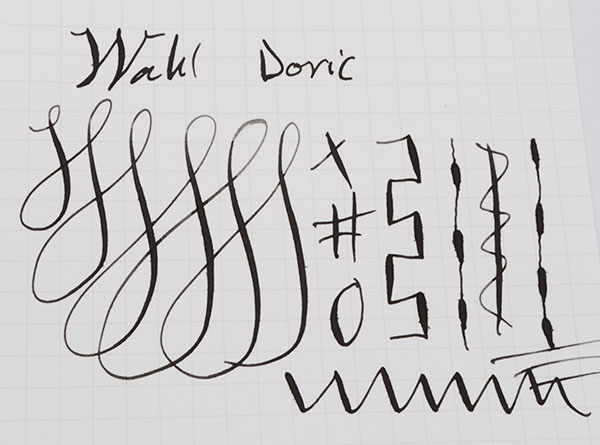 Wahl Doric
X
#
O